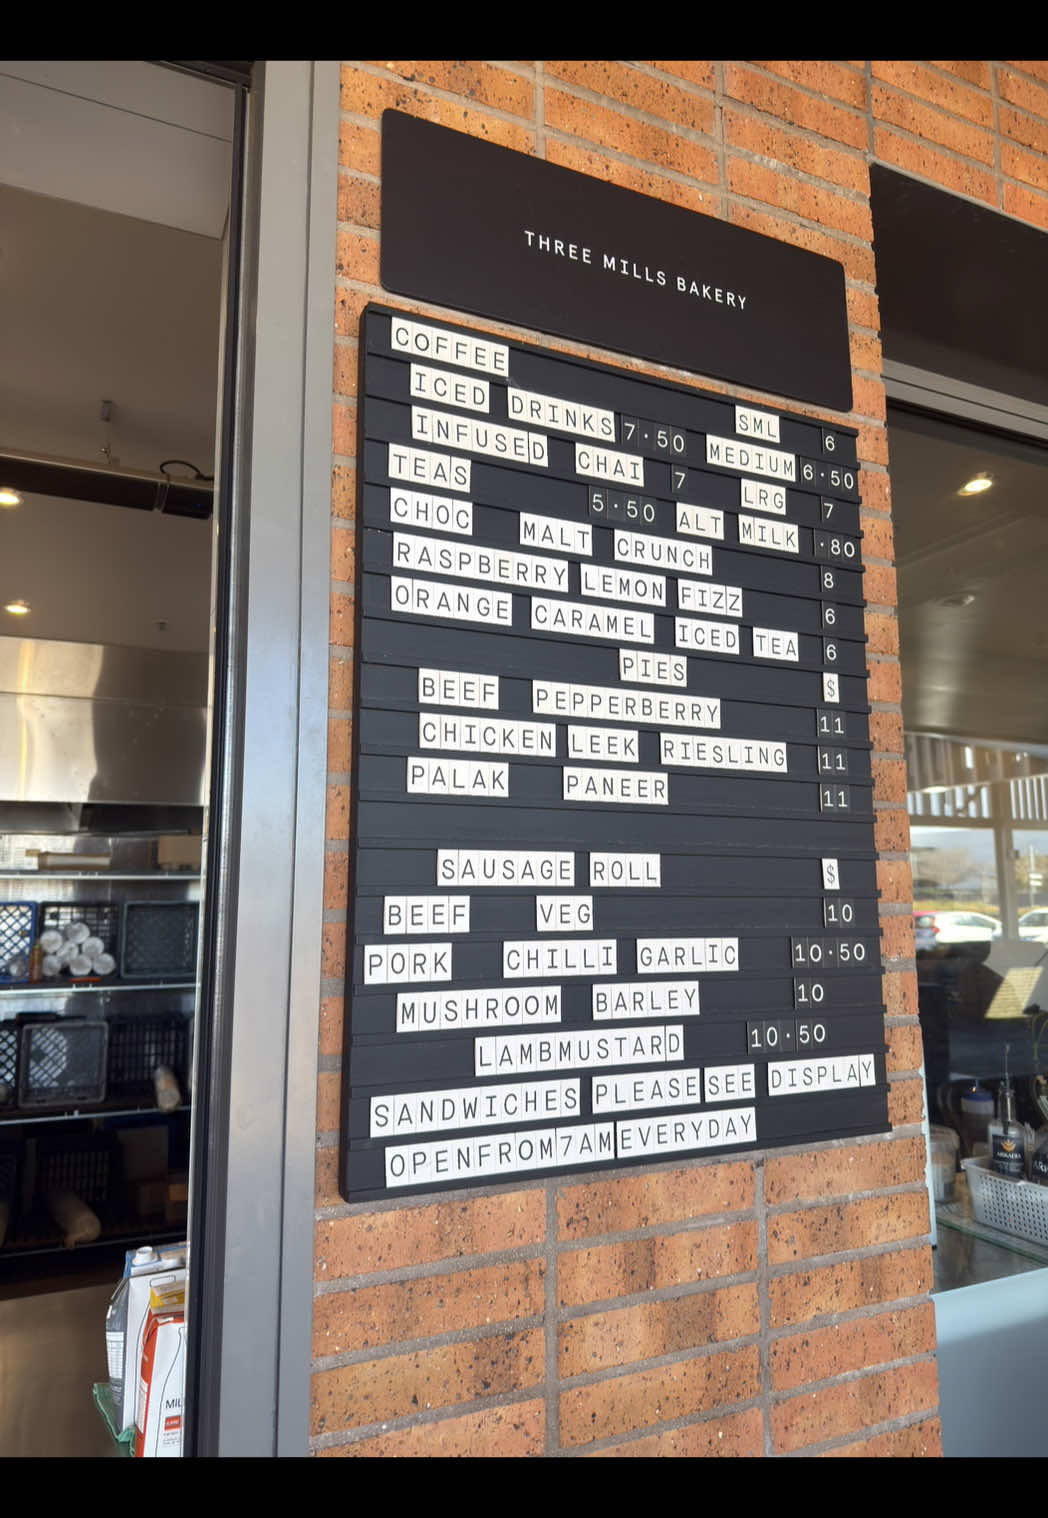 THREE MILLS BAKERY
COFFEE SML 6
ICED DRINKS 7·50 MEDIUM 6·50
INFUSED CHAI 7 LRG 7
TEAS 5·50 ALT MILK ·80
CHOC MALT CRUNCH 8
RASPBERRY LEMON FIZZ 6
ORANGE CARAMEL ICED TEA 6
PIES $
BEEF PEPPERBERRY 11
CHICKEN LEEK RIESLING 11
PALAK PANEER 11
SAUSAGE ROLL $
BEEF VEG 10
PORK CHILLI GARLIC 10·50
MUSHROOM BARLEY 10
LAMBMUSTARD 10·50
SANDWICHES PLEASE SEE DISPLAY
OPENFROM7AM EVERYDAY
ARKADIA